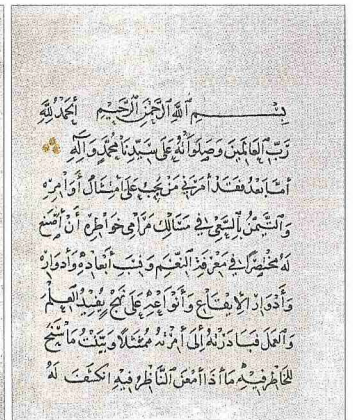 بِسْمِ اللَّهِ الرَّحْمٰنِ الرَّحِيمِ الحَمْدُ لِلَّهِ
رَبِّ العَالَمِينَ وَصَلَوَاتُهُ عَلَى سَيِّدِنَا مُحَمَّدٍ وَآلِهِ
أمَّا بَعْدُ فَقَدْ أمَرَنِي مَنْ يَجِبُ عَلَيَّ امْتِثَالُ أَوَامِرِهِ
وَالتَّيَمُّنُ بِالسَّعْيِ فِي مَسَالِكِ مَرَامِي خَوَاطِرِهِ أَنْ أَضَعَ
لَهُ مُخْتَصَرًا فِي مَعْرِفَةِ النَّغَمِ وَنِسَبِ أَبْعَادِهِ وَأَدْوَارِهِ
وَأَدْوَارِ الإِيقَاعِ وَأَنْوَاعِهِ عَلَى نَهْجٍ يُفِيدُ العِلْمَ
وَالعَمَلَ فَبَادَرْتُ إِلَى أَمْرِهِ مُمْتَثِلًا وَبَيَّنْتُ مَا سَنَحَ
لِلخَاطِرِ فِيهِ مَا إِذَا أَمْعَنَ النَّاظِرُ فِيهِ انْكَشَفَ لَهُ